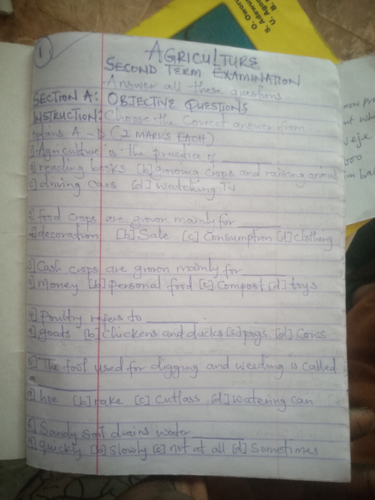 1
AGRICULTURE
SECOND TERM EXAMINATION
Answer all these questions
SECTION A: OBJECTIVE QUESTIONS
INSTRUCTION: Choose the correct answer from
A - D (2 MARKS EACH)
Agriculture is the practice of
reading books [b] growing crops and raising
driving cars [d] watching TV
food crops are grown mainly for
decoration [b] Sale [c] Consumption [d] clothing
Cash crops are grown mainly for
money [b] personal food [c] Compost [d] toys
Poultry refers to
goats [b] chickens and ducks [c] pigs [d] Cows
The tool used for digging and weeding is called
a
hoe [b] rake [c] Cutlass [d] watering can
Sandy soil drains water
quickly [b] slowly [c] not at all [d] Sometimes